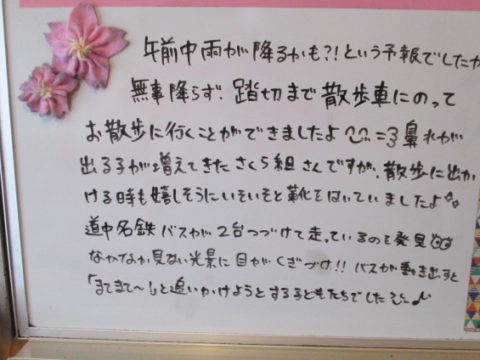 午前中雨が降るかも?!という予報でしたが
無事降らず! 踏切まで散歩車にのって
お散歩に行くことができましたよ 鼻水が
出る子が増えてきたさくら組さんですが、散歩に出か
ける時も嬉しそうにいそいそと靴をはいていましたよ
道中名鉄バスが2台つづけて走っているのを発見
なかなか見ない光景に目がくぎづけ!! バスが動き出すと
「まてまて〜」と追いかけようとする子どもたちでした♪